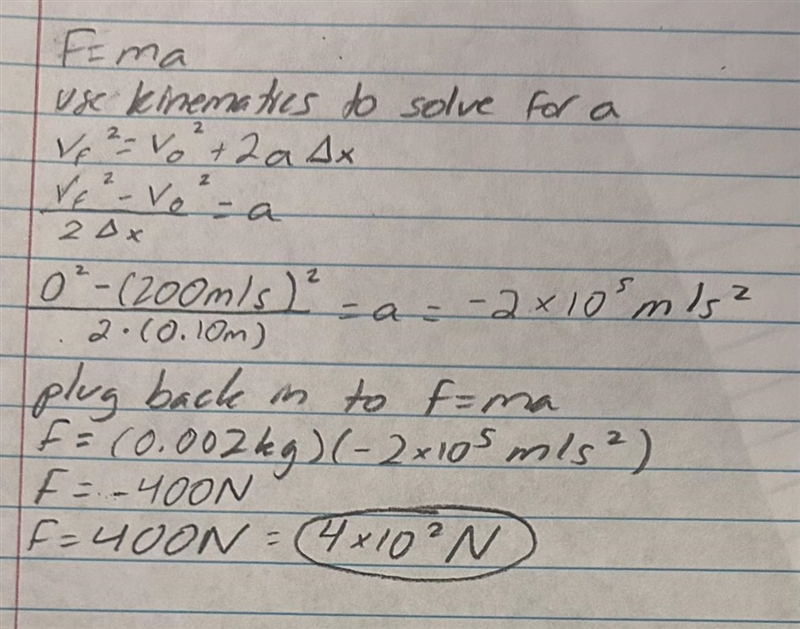 F=ma
use kinematics to solve for a
Vf² = V0² + 2a Δx
Vf² - V0² / 2 Δx = a
0² - (200m/s)² / 2·(0.10m) = a = -2×10⁵ m/s²
plug back in to F=ma
F = (0.002kg)(-2×10⁵ m/s²)
F = -400N
F = 400N = 4×10² N